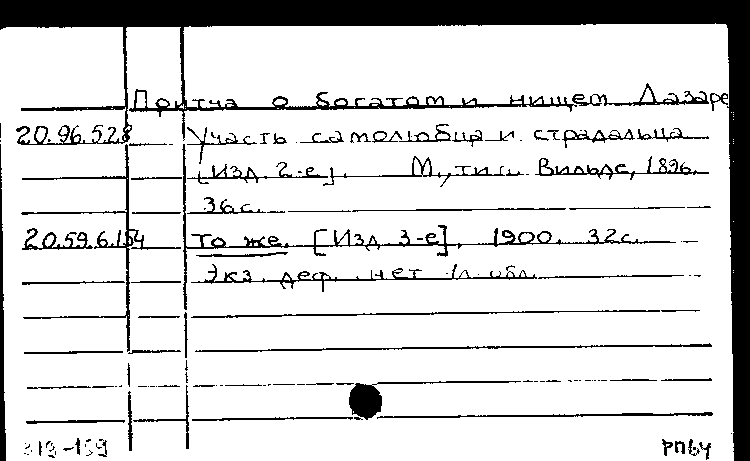 Притча о богатом и нищем Лазаре
20.96.5.28 Участь самолюбца и страдальца
[Изд. 2-е]. М., тип. Вильде, 1896.
36с.
20.59.6.154 То же. [Изд 3-е]. 1900. 32с.
Экз. деф. нет 1л. обл.
319-159 РПБ4